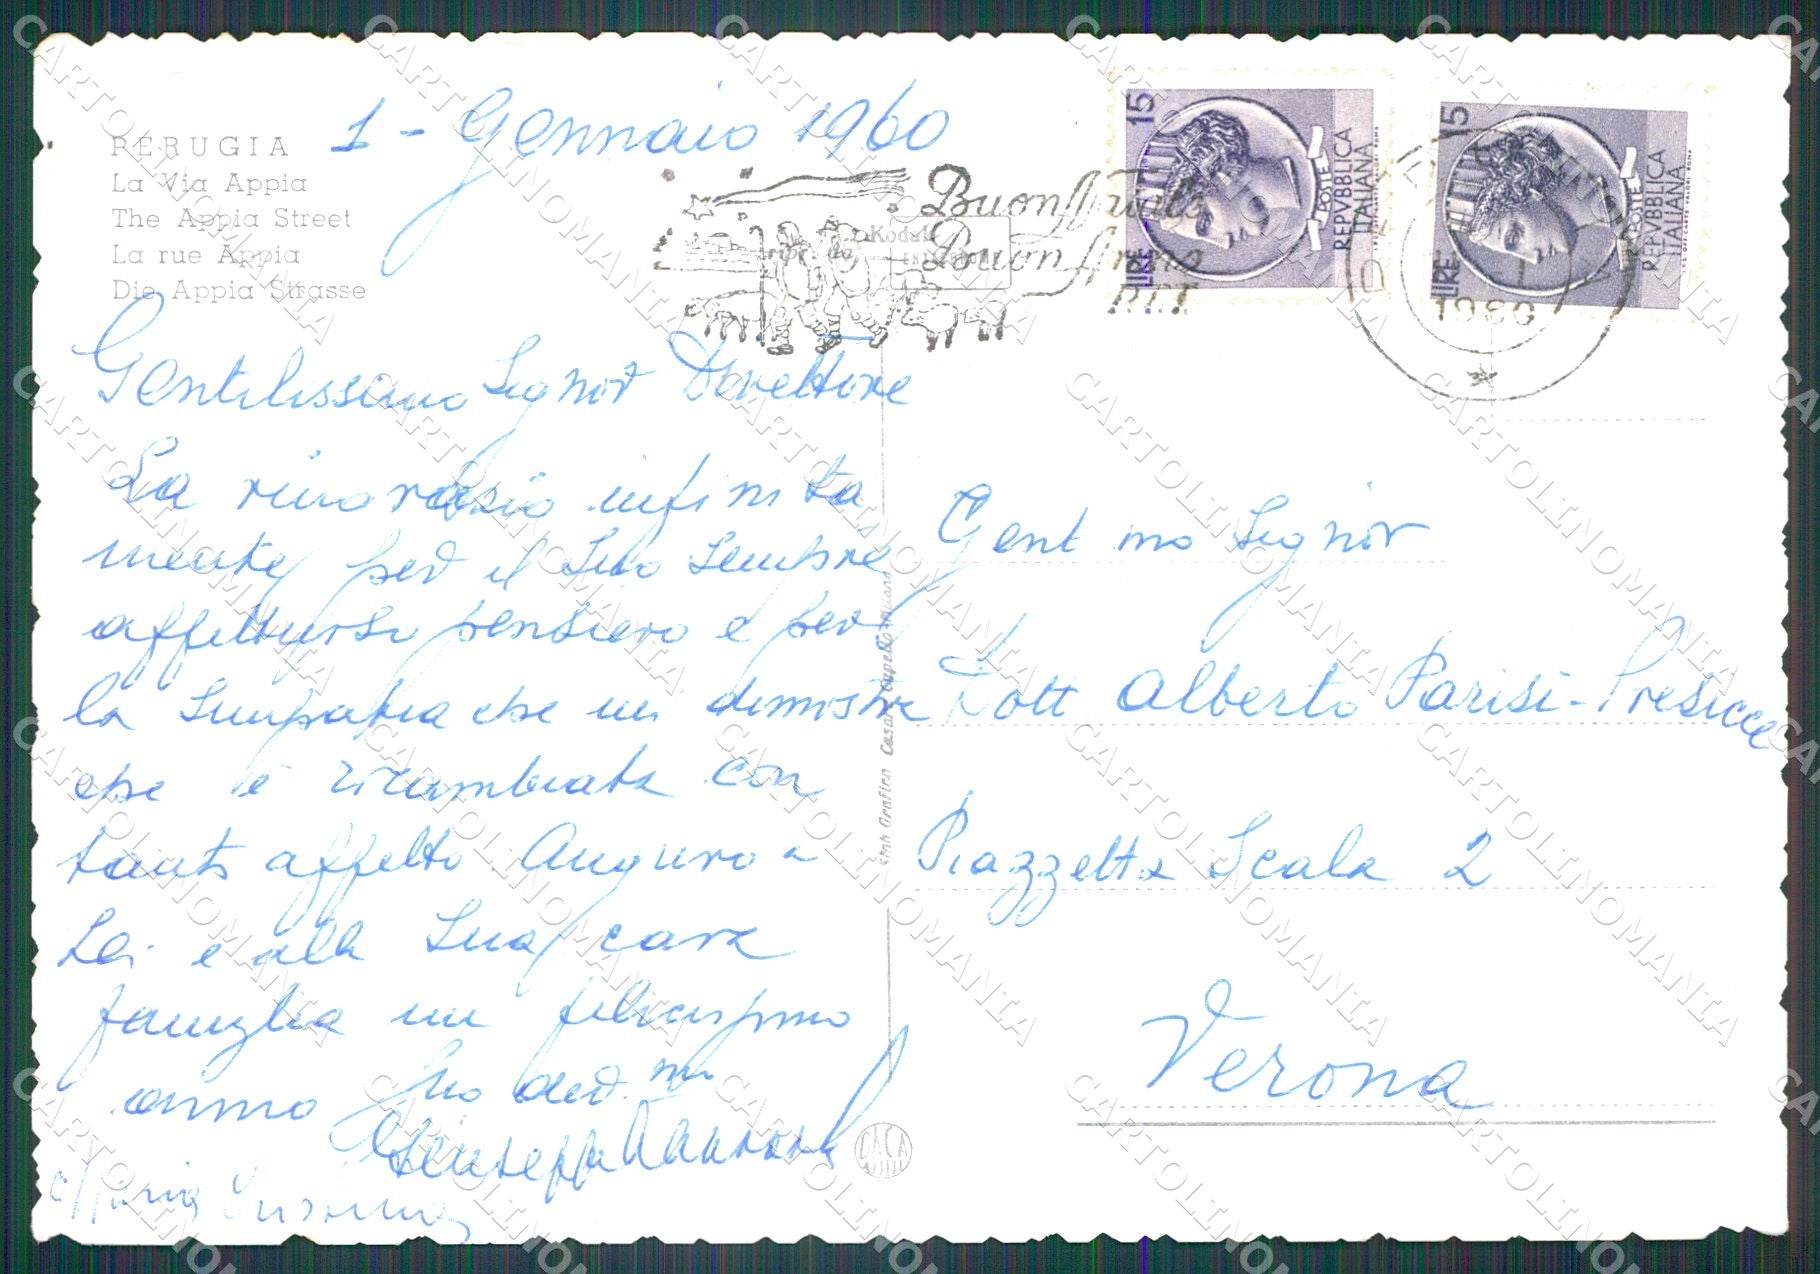 PERUGIA
La Via Appia
The Appia Street
La rue Appia
Die Appia Strasse
1 - Gennaio 1960
Gentilissimo Signor Direttore
La ringrazio infinita
mente per il Suo sempre
affettuoso pensiero e per
la simpatia che mi dimostra
che è ricambiata con
tanto affetto. Auguro a
Lei e alla Sua cara
famiglia un felicissimo
anno Suo dev.mo
Giuseppe
Maria
Buon Natale
Buon Anno
Kodak
EKTACHROME
15
LIRE
POSTE
REPVBBLICA
ITALIANA
15
LIRE
POSTE
REPVBBLICA
ITALIANA
1960
Gent mo Signor
Dott Alberto Parisi-Presicce
Piazzetta Scala 2
Verona
Stab Grafico Cesare Capello Milano
CACA
CARTOLINOMANIA